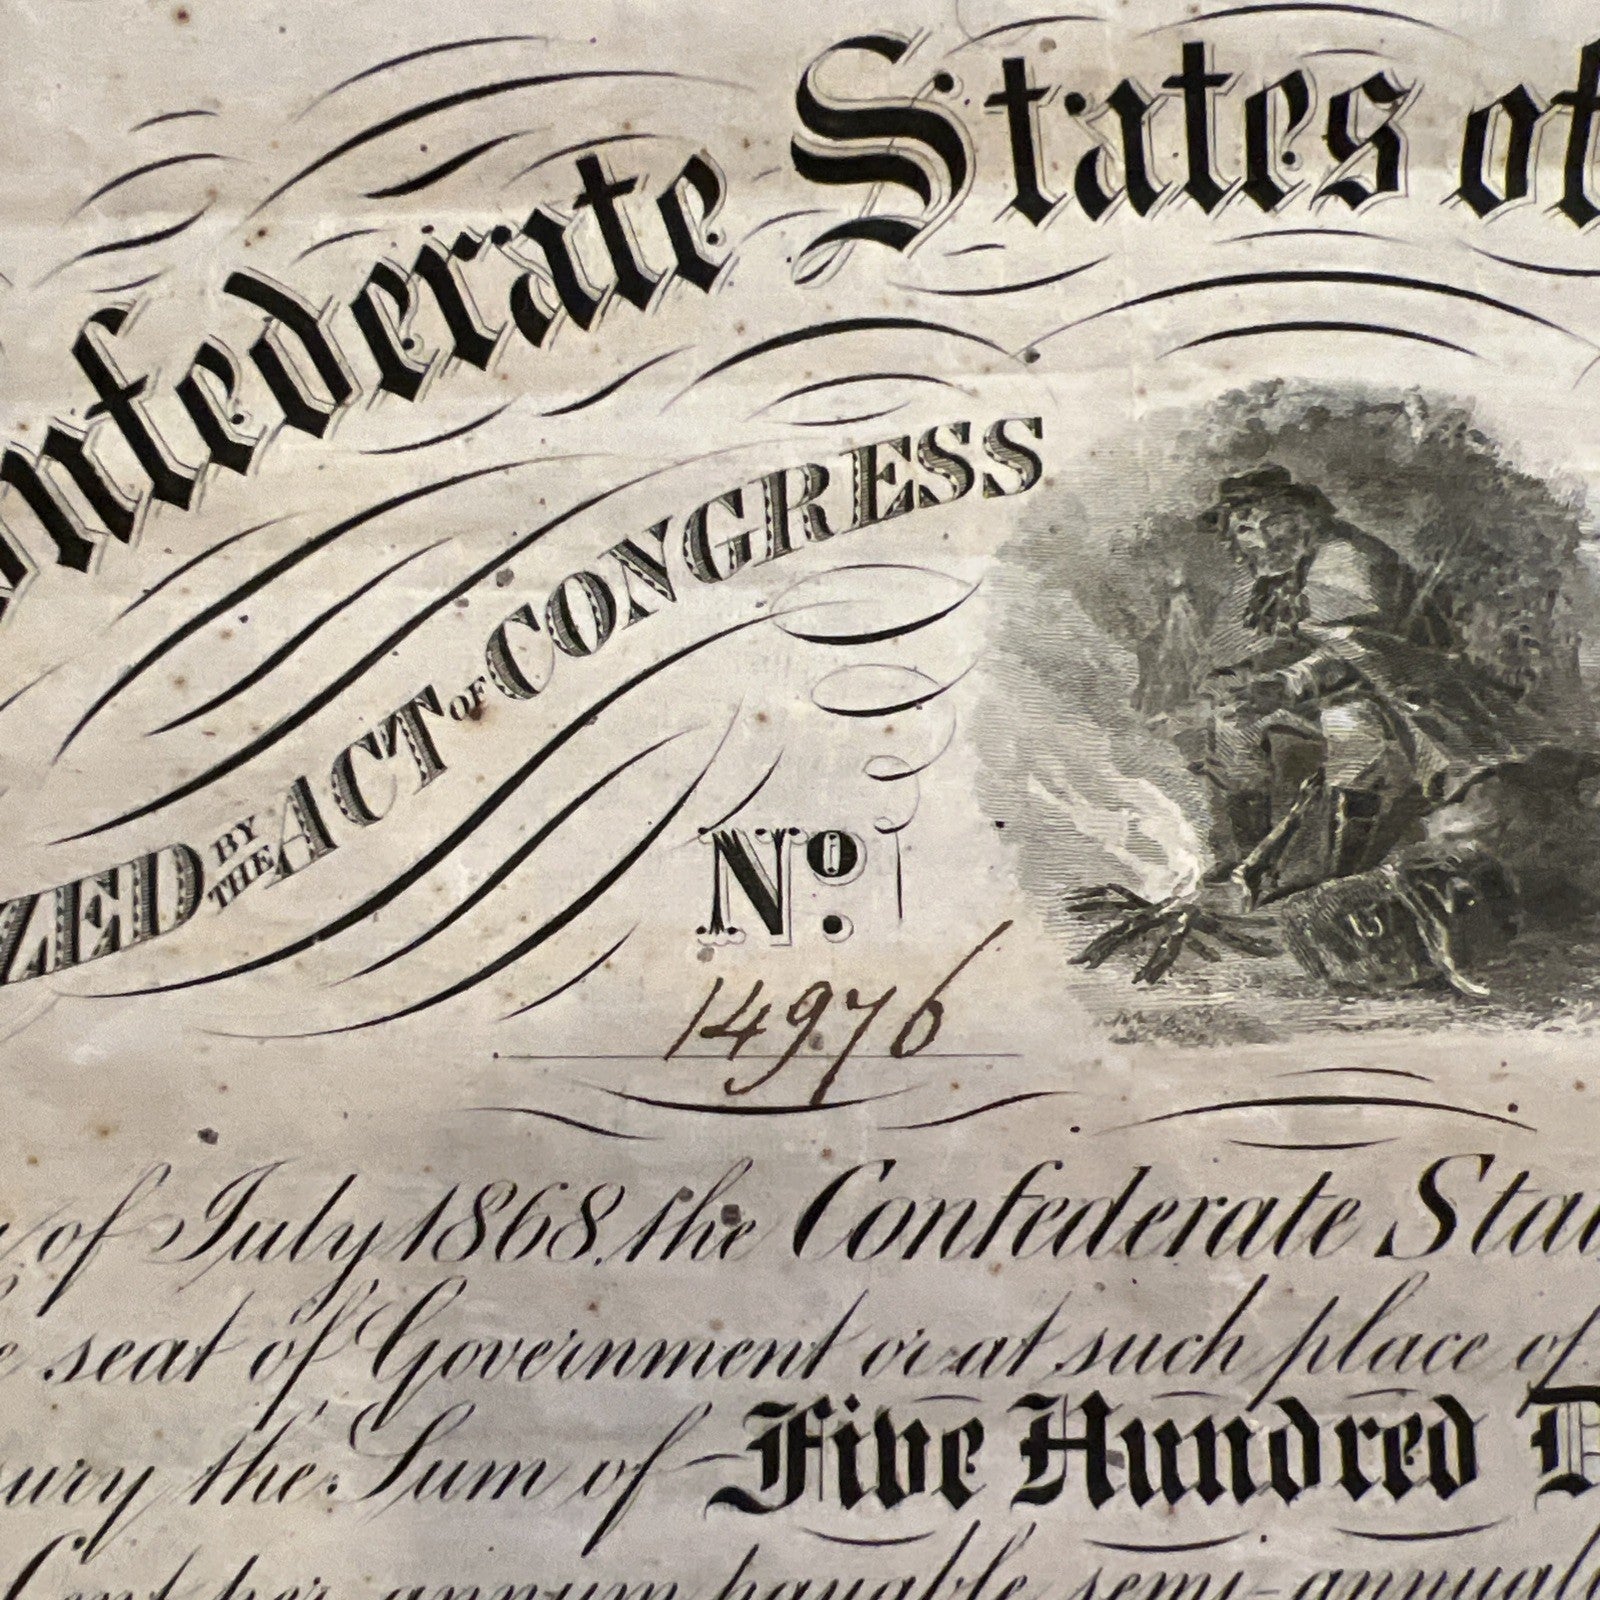 onfederate States of
ZED BY THE ACT OF CONGRESS
No.
14976
of July 1868, the Confederate Stat
seat of Government or at such place of
ury the Sum of Five Hundred D
Cent per annum payable semi-annuall